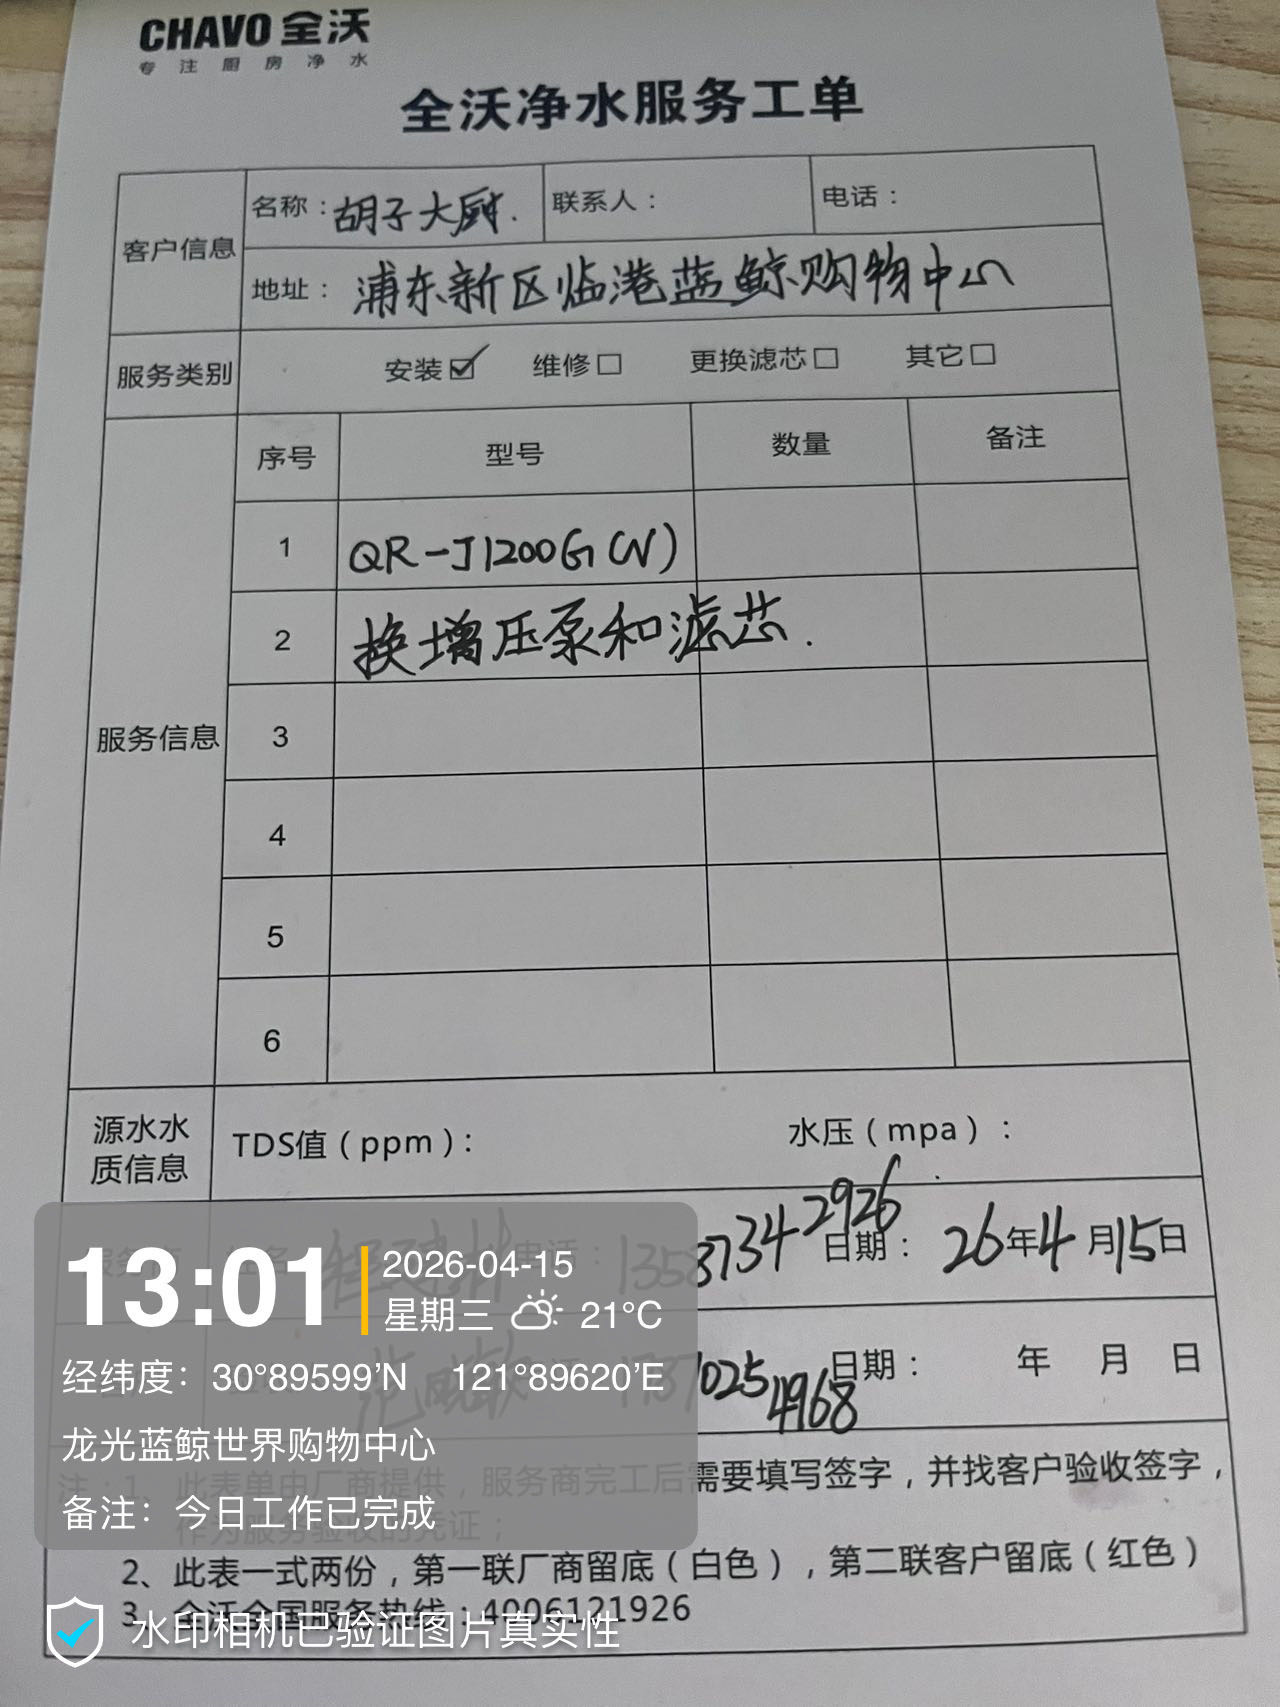 CHAVO 全沃
专注厨房净水
全沃净水服务工单
客户信息
名称：胡子大厨.
联系人：
电话：
地址：浦东新区临港蓝鲸购物中心
服务类别
安装☑ 维修□ 更换滤芯□ 其它□
服务信息
序号 型号 数量 备注
1 QR-J1200G(N)
2 换增压泵和滤芯.
3
4
5
6
源水水质信息
TDS值（ppm）：
水压（mpa）：
电话： 13587342926
日期： 26年4月15日
0254968
日期： 年 月 日
注：1、此表单由厂商提供，服务商完工后需要填写签字，并找客户验收签字，
作为服务验收的凭证；
2、此表一式两份，第一联厂商留底（白色），第二联客户留底（红色）
3、全沃全国服务热线：4006121926
13:01
2026-04-15
星期三 21°C
经纬度：30°89599'N 121°89620'E
龙光蓝鲸世界购物中心
备注：今日工作已完成
水印相机已验证图片真实性